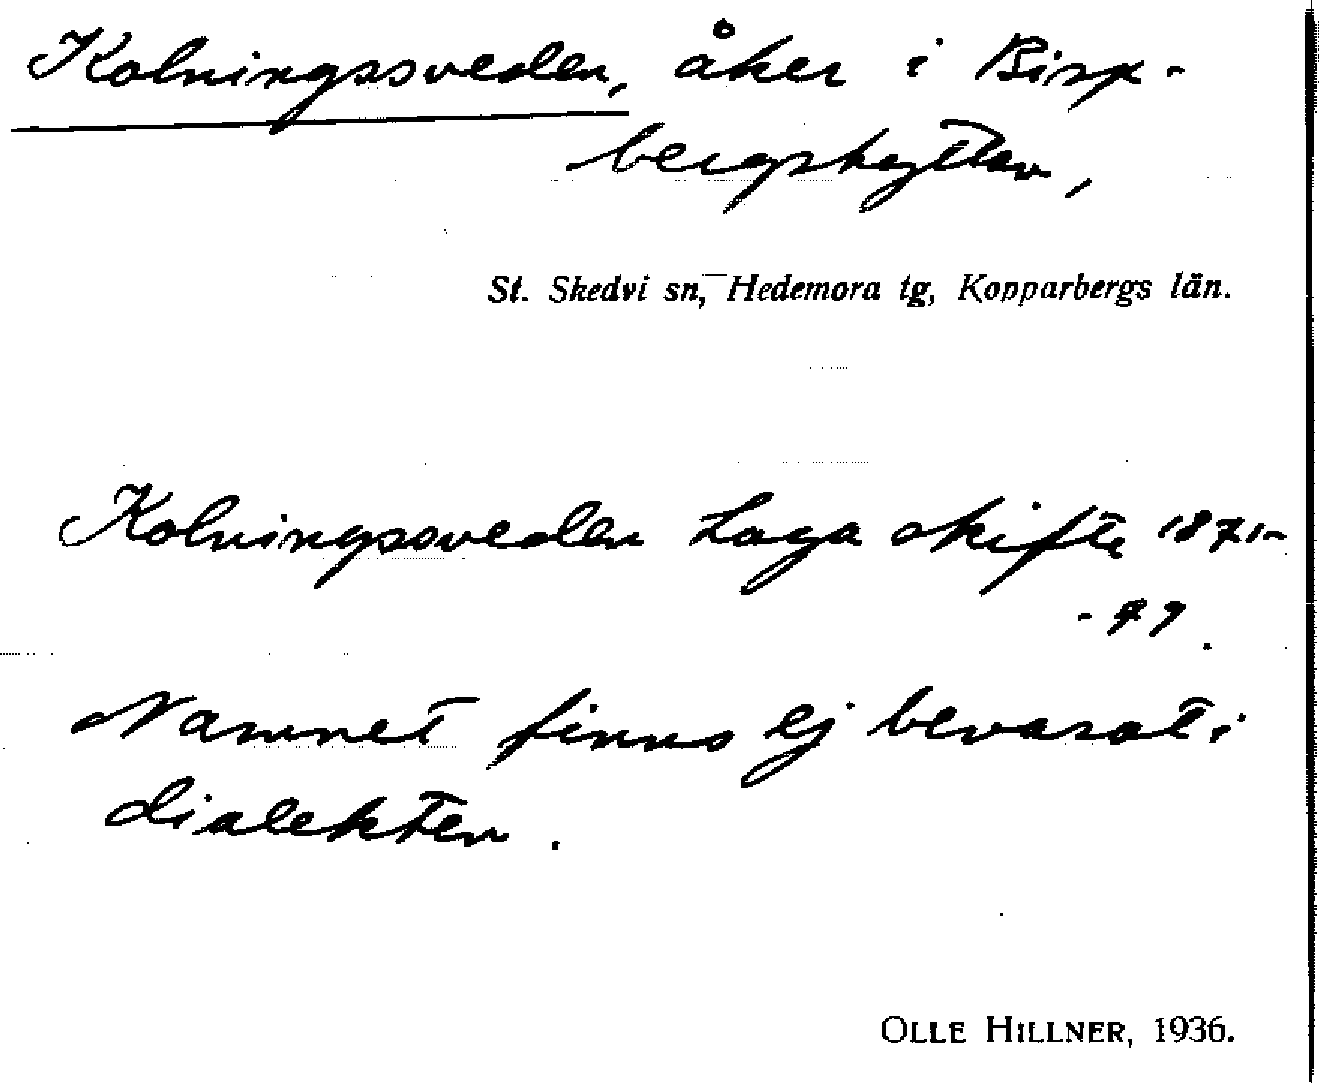 Kolningssveden, åker i Bisp-
bergshyttan,
St. Skedvi sn, Hedemora tg, Kopparbergs län.
Kolningssveden Laga skifte 1871-
-77.
Namnet finns ej bevarat i
dialekten.
OLLE HILLNER, 1936.